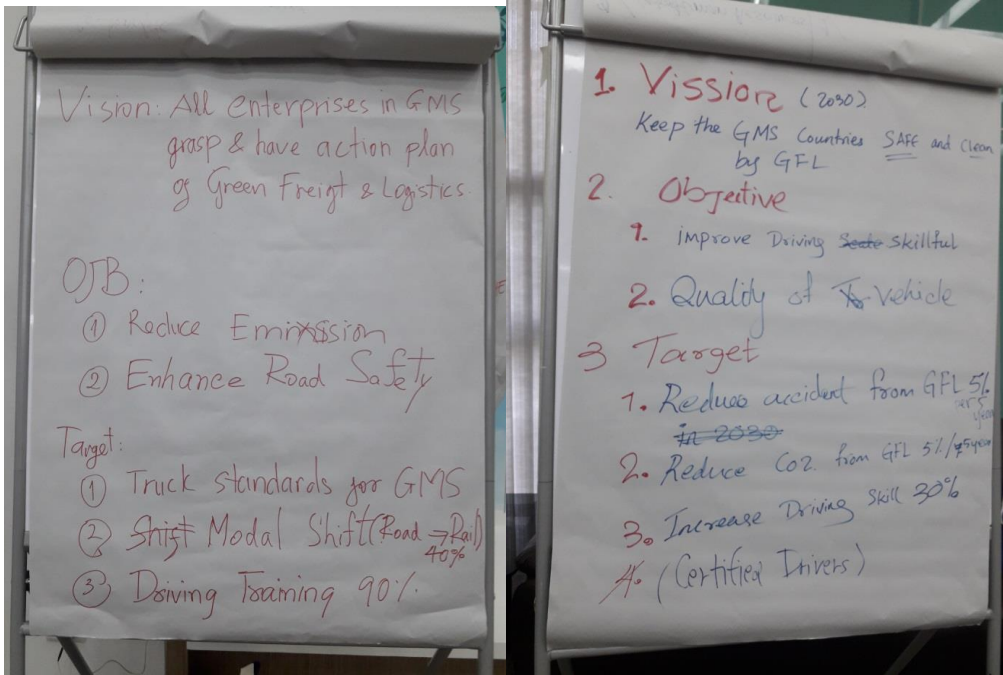 Vision: All enterprises in GMS
grasp & have action plan
of Green Freigt & Logistics.
OJB:
① Reduce Emission
② Enhance Road Safety
Target:
① Truck standards for GMS
② Shift Modal Shift (Road → Rail)
40%
③ Driving Training 90%.
1. Vission (2030)
Keep the GMS Countries SAFE and Clean
by GFL
2. Objective
1. improve Driving skillful
2. Quality of Vehicle
3 Target
1. Reduce accident from GFL 5%
per 5
year
in 2030
2. Reduce CO2 from GFL 5%/5year
3. Increase Driving Skill 30%
4. (Certified Drivers)